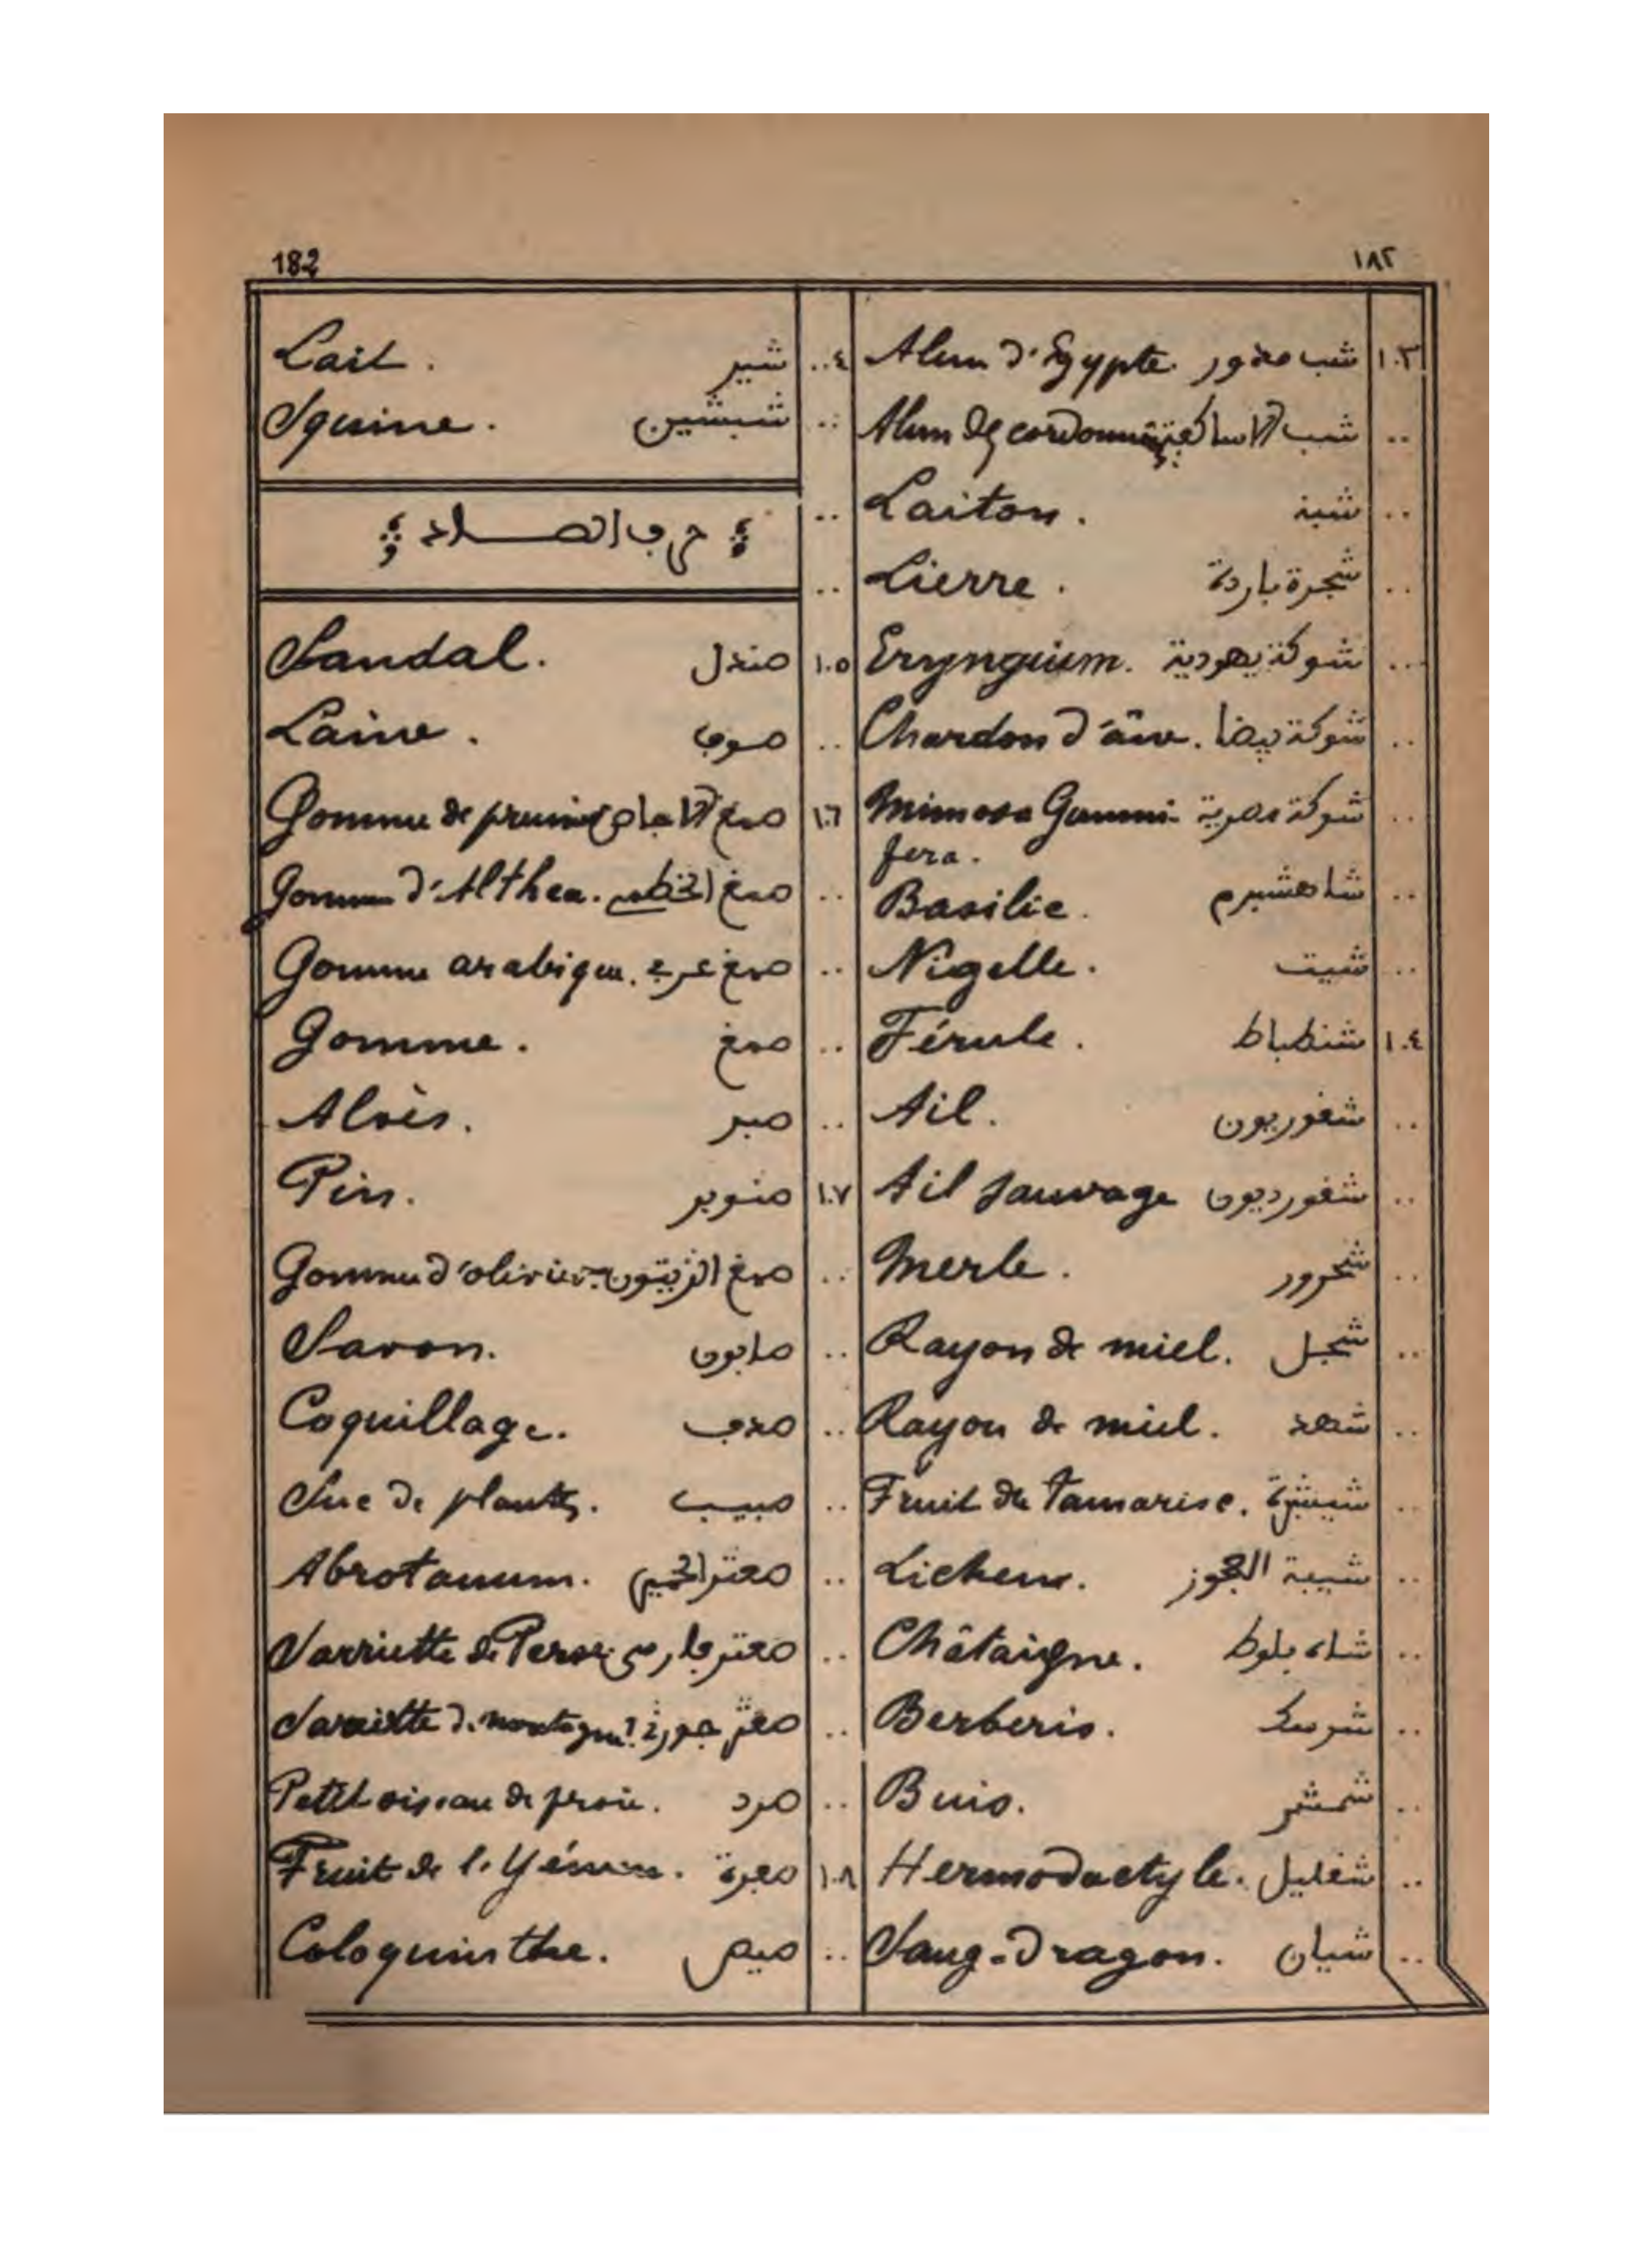 182 ١٨٢
١٠٣ شب مضور Alun d'Egypte.
.. شب الاساكفة Alun de cordonnier
.. شبة Laiton.
.. شجرة باردة Lierre.
.. شوكة يهودية Eryngium.
.. شوكة بيضا Chardon d'âne.
.. شوكة مصرية Mimosa Gummi-
fera.
.. شاهشبرم Basilic.
.. شيت Nigelle.
١٠٤ شنطباط Férule.
.. شغوريون Ail.
.. شغورديون Ail sauvage
.. شحرور Merle.
.. شجل Rayon de miel.
.. شهد Rayon de miel.
.. Fruit du Tamarisc.
.. شيبة العجوز Lichens.
.. شاه بلوط Châtaigne.
.. شرسك Berberis.
.. شمشر Buis.
.. شغليل Hermodactyle.
.. شيان Sang-dragon.
..٤ شير Lait.
.. شبشين Squine.
.. حرف الصاد
..
١٠٥ صندل Sandal.
.. صوف Laine.
١٠٦ صمغ الاجاص Gomme de prunier
.. صمغ الخطمى Gomme d'Althea.
.. صمغ عربي Gomme arabique.
.. صمغ Gomme.
.. صبر Aloès.
١٠٧ صنوبر Pin.
.. صمغ الزيتون Gomme d'olivier.
.. صابون Savon.
.. صدف Coquillage.
.. صبيب Suc de plantes.
.. صعتر الحمير Abrotanum.
.. صعتر فارسي Sarriette de Perse.
.. صعتر حورة Sarriette de montagne.
.. صرد Petit oiseau de proie.
١٠٨ صبرة Fruit de l'Yémen.
.. صيص Coloquinthe.